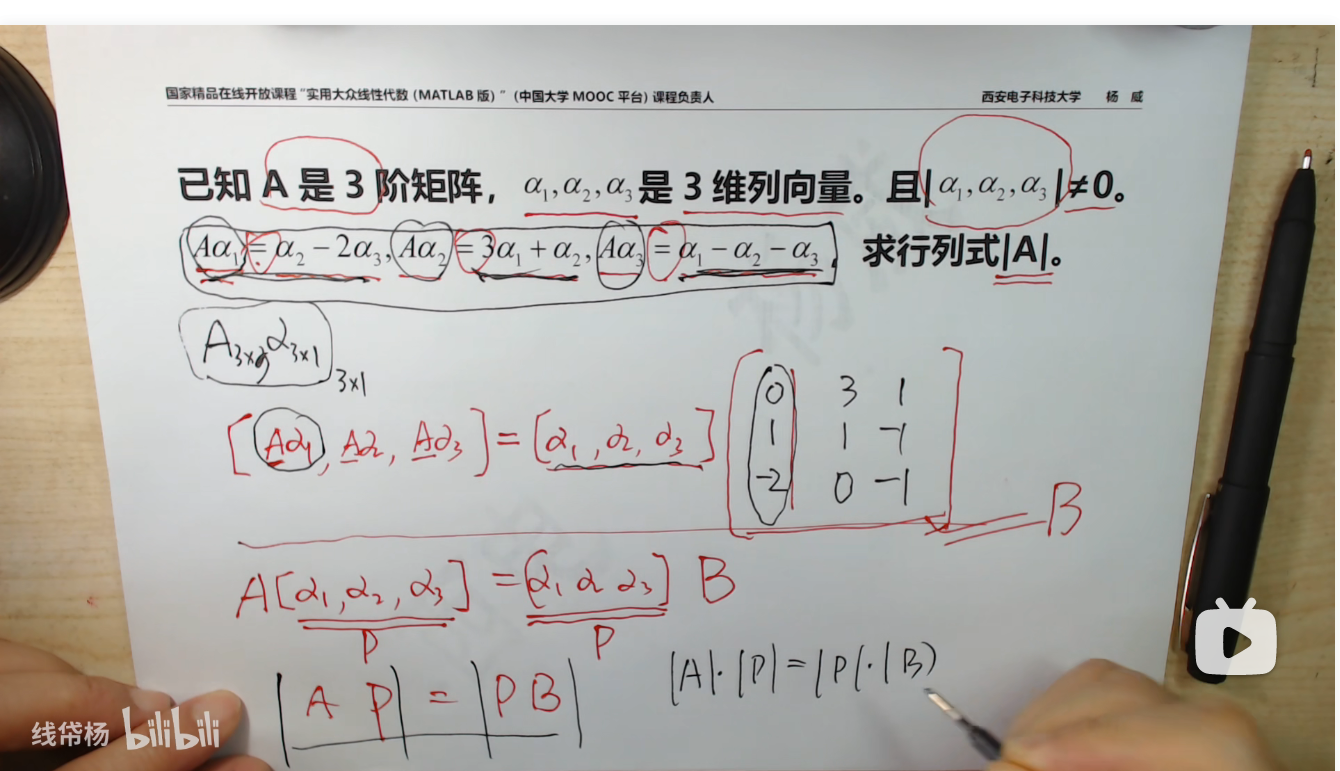 国家精品在线开放课程“实用大众线性代数（MATLAB 版）”（中国大学 MOOC 平台）课程负责人 西安电子科技大学 杨 威
已知 A 是 3 阶矩阵， α₁,α₂,α₃ 是 3 维列向量。且|α₁,α₂,α₃|≠0。
Aα₁=α₂−2α₃,Aα₂=3α₁+α₂,Aα₃=α₁−α₂−α₃, 求行列式|A|。
A₃ₓ₃α₃ₓ₁ 3×1
[Aα₁, Aα₂, Aα₃]=[α₁,α₂,α₃]
0 3 1
1 1 -1
-2 0 -1
B
A[α₁,α₂,α₃]=[α₁ α₂ α₃]B
P P
|A P|=|P B|
|A|·|P|=|P|·|B|
线帒杨 bilibili